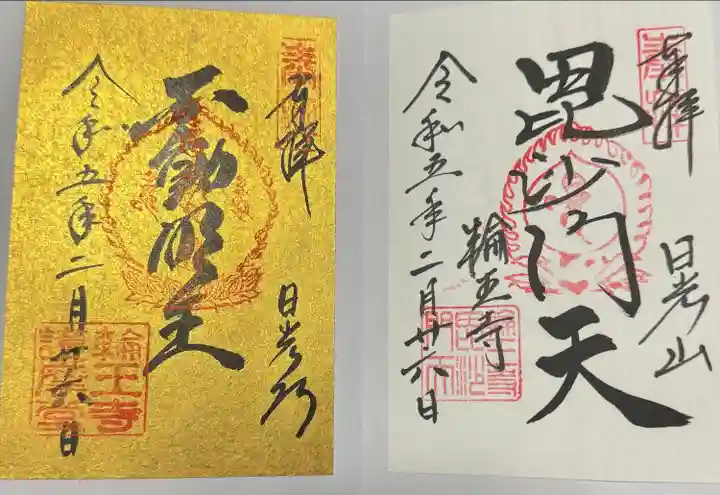 奉拝
日光山
不動明王
令和五年二月廿六日
輪王寺
奉拝
日光山
毘沙門天
輪王寺
令和五年二月廿六日